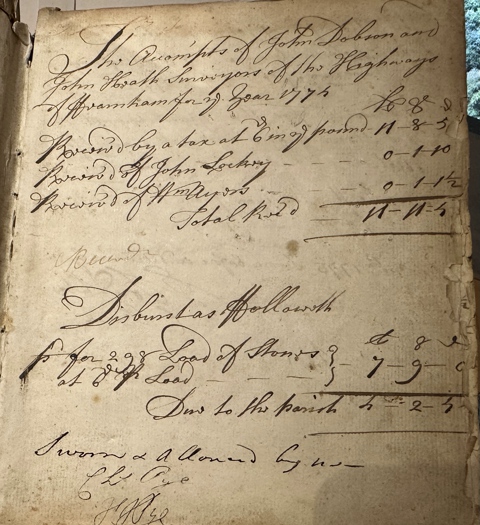 The Accompts of John Dobson and
John Heath Surveyors of the Highways
of Framham for ye Year 1774
£ s d
Receiv'd by a tax at 6d in ye pound 11-8-5
Receiv'd of John Lockey - - - 0-1-10
Receiv'd of Wm Ayers - 0-1-1½
Total Rec'd - 11-11-4
Disburst as Followeth
£ s d
pd for 298 Load of Stones
at 6d pr Load - - - - 7-9-0
Due to the parish 4-2-4
Sworn & Allowed by us
Chs Pye
HPye